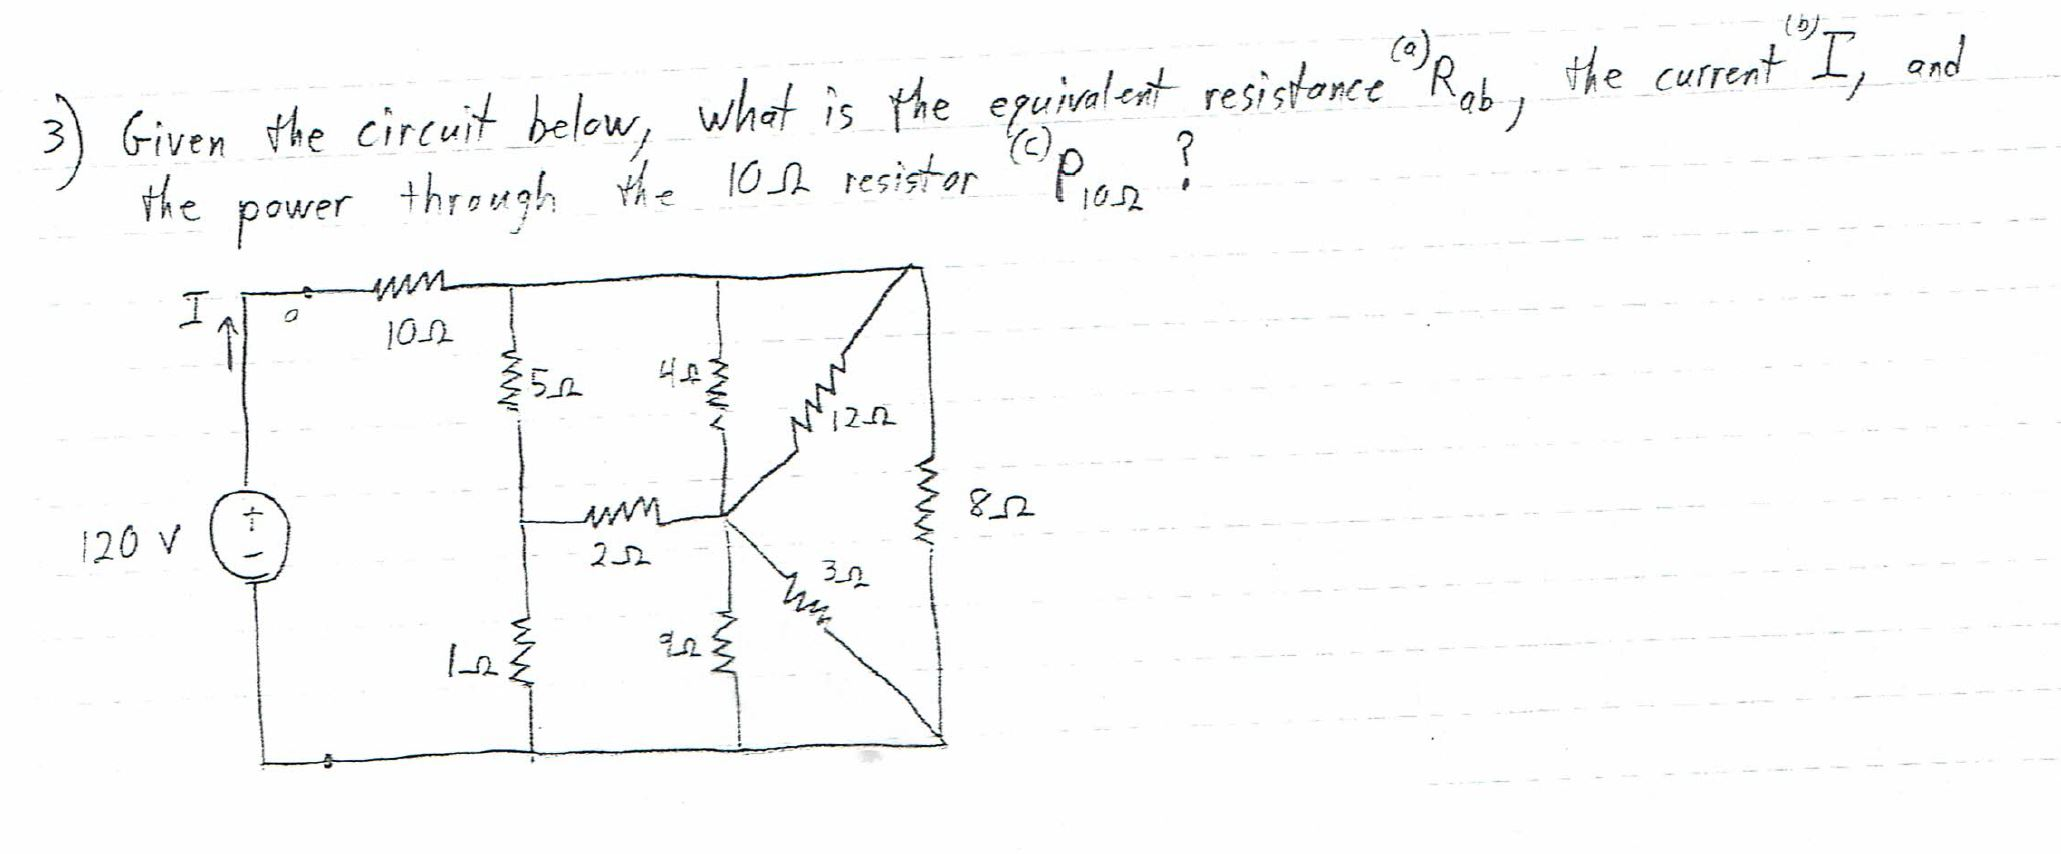 3) Given the circuit below, what is the equivalent resistance (a) Rab, the current (b) I, and
the power through the 10Ω resistor (c) P10Ω ?
I
a
10Ω
5Ω
4Ω
12Ω
8Ω
120 V
+
−
2Ω
3Ω
1Ω
9Ω